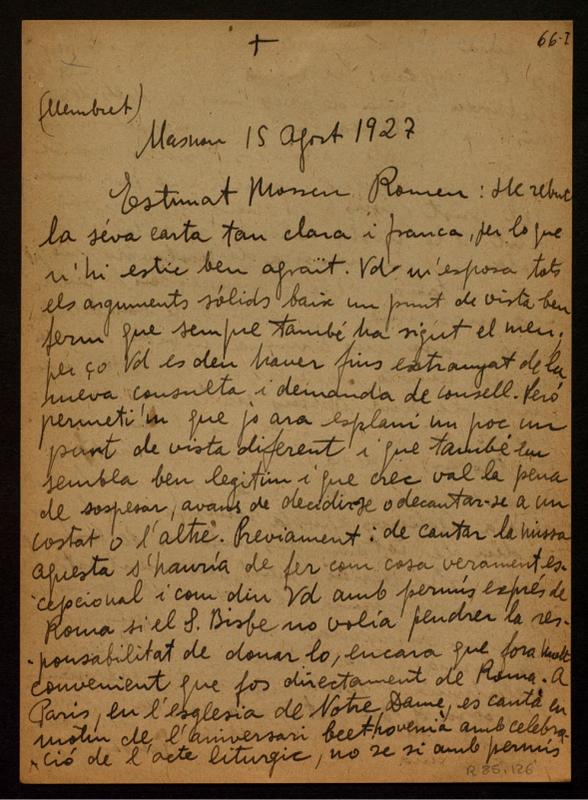 +
66-I
(Membret)
Masnou 15 Agost 1927
Estimat Mossen Romeu: He rebut
la séva carta tan clara i franca, per lo que
n'hi estic ben agraït. Vd m'esposa tots
els arguments sólids baix un punt de vista ben
ferm que sempre també ha sigut el meu;
per ço Vd es deu haver fins extranyat de la
meva consulta i demanda de consell. Peró
permeti'm que jo ara esplani un poc un
punt de vista diferent i que també em
sembla ben legitim i que crec val la pena
de sospesar, avans de decidirse o decantar-se a un
costat o l'altre. Previament: de cantar la missa
aquesta s'hauría de fer com cosa verament es-
cepcional i com diu Vd amb permís exprés de
Roma si el S. Bisbe no volía pendrer la res-
ponsabilitat de donar lo, encara que fora molt
convenient que fos directament de Roma. A
París, en l'esglesia de Notre Dame, es cantà en
motiu de l'aniversari beethovenià amb celebra-
ció de l'acte liturgic, no se si amb permís
R 85.126